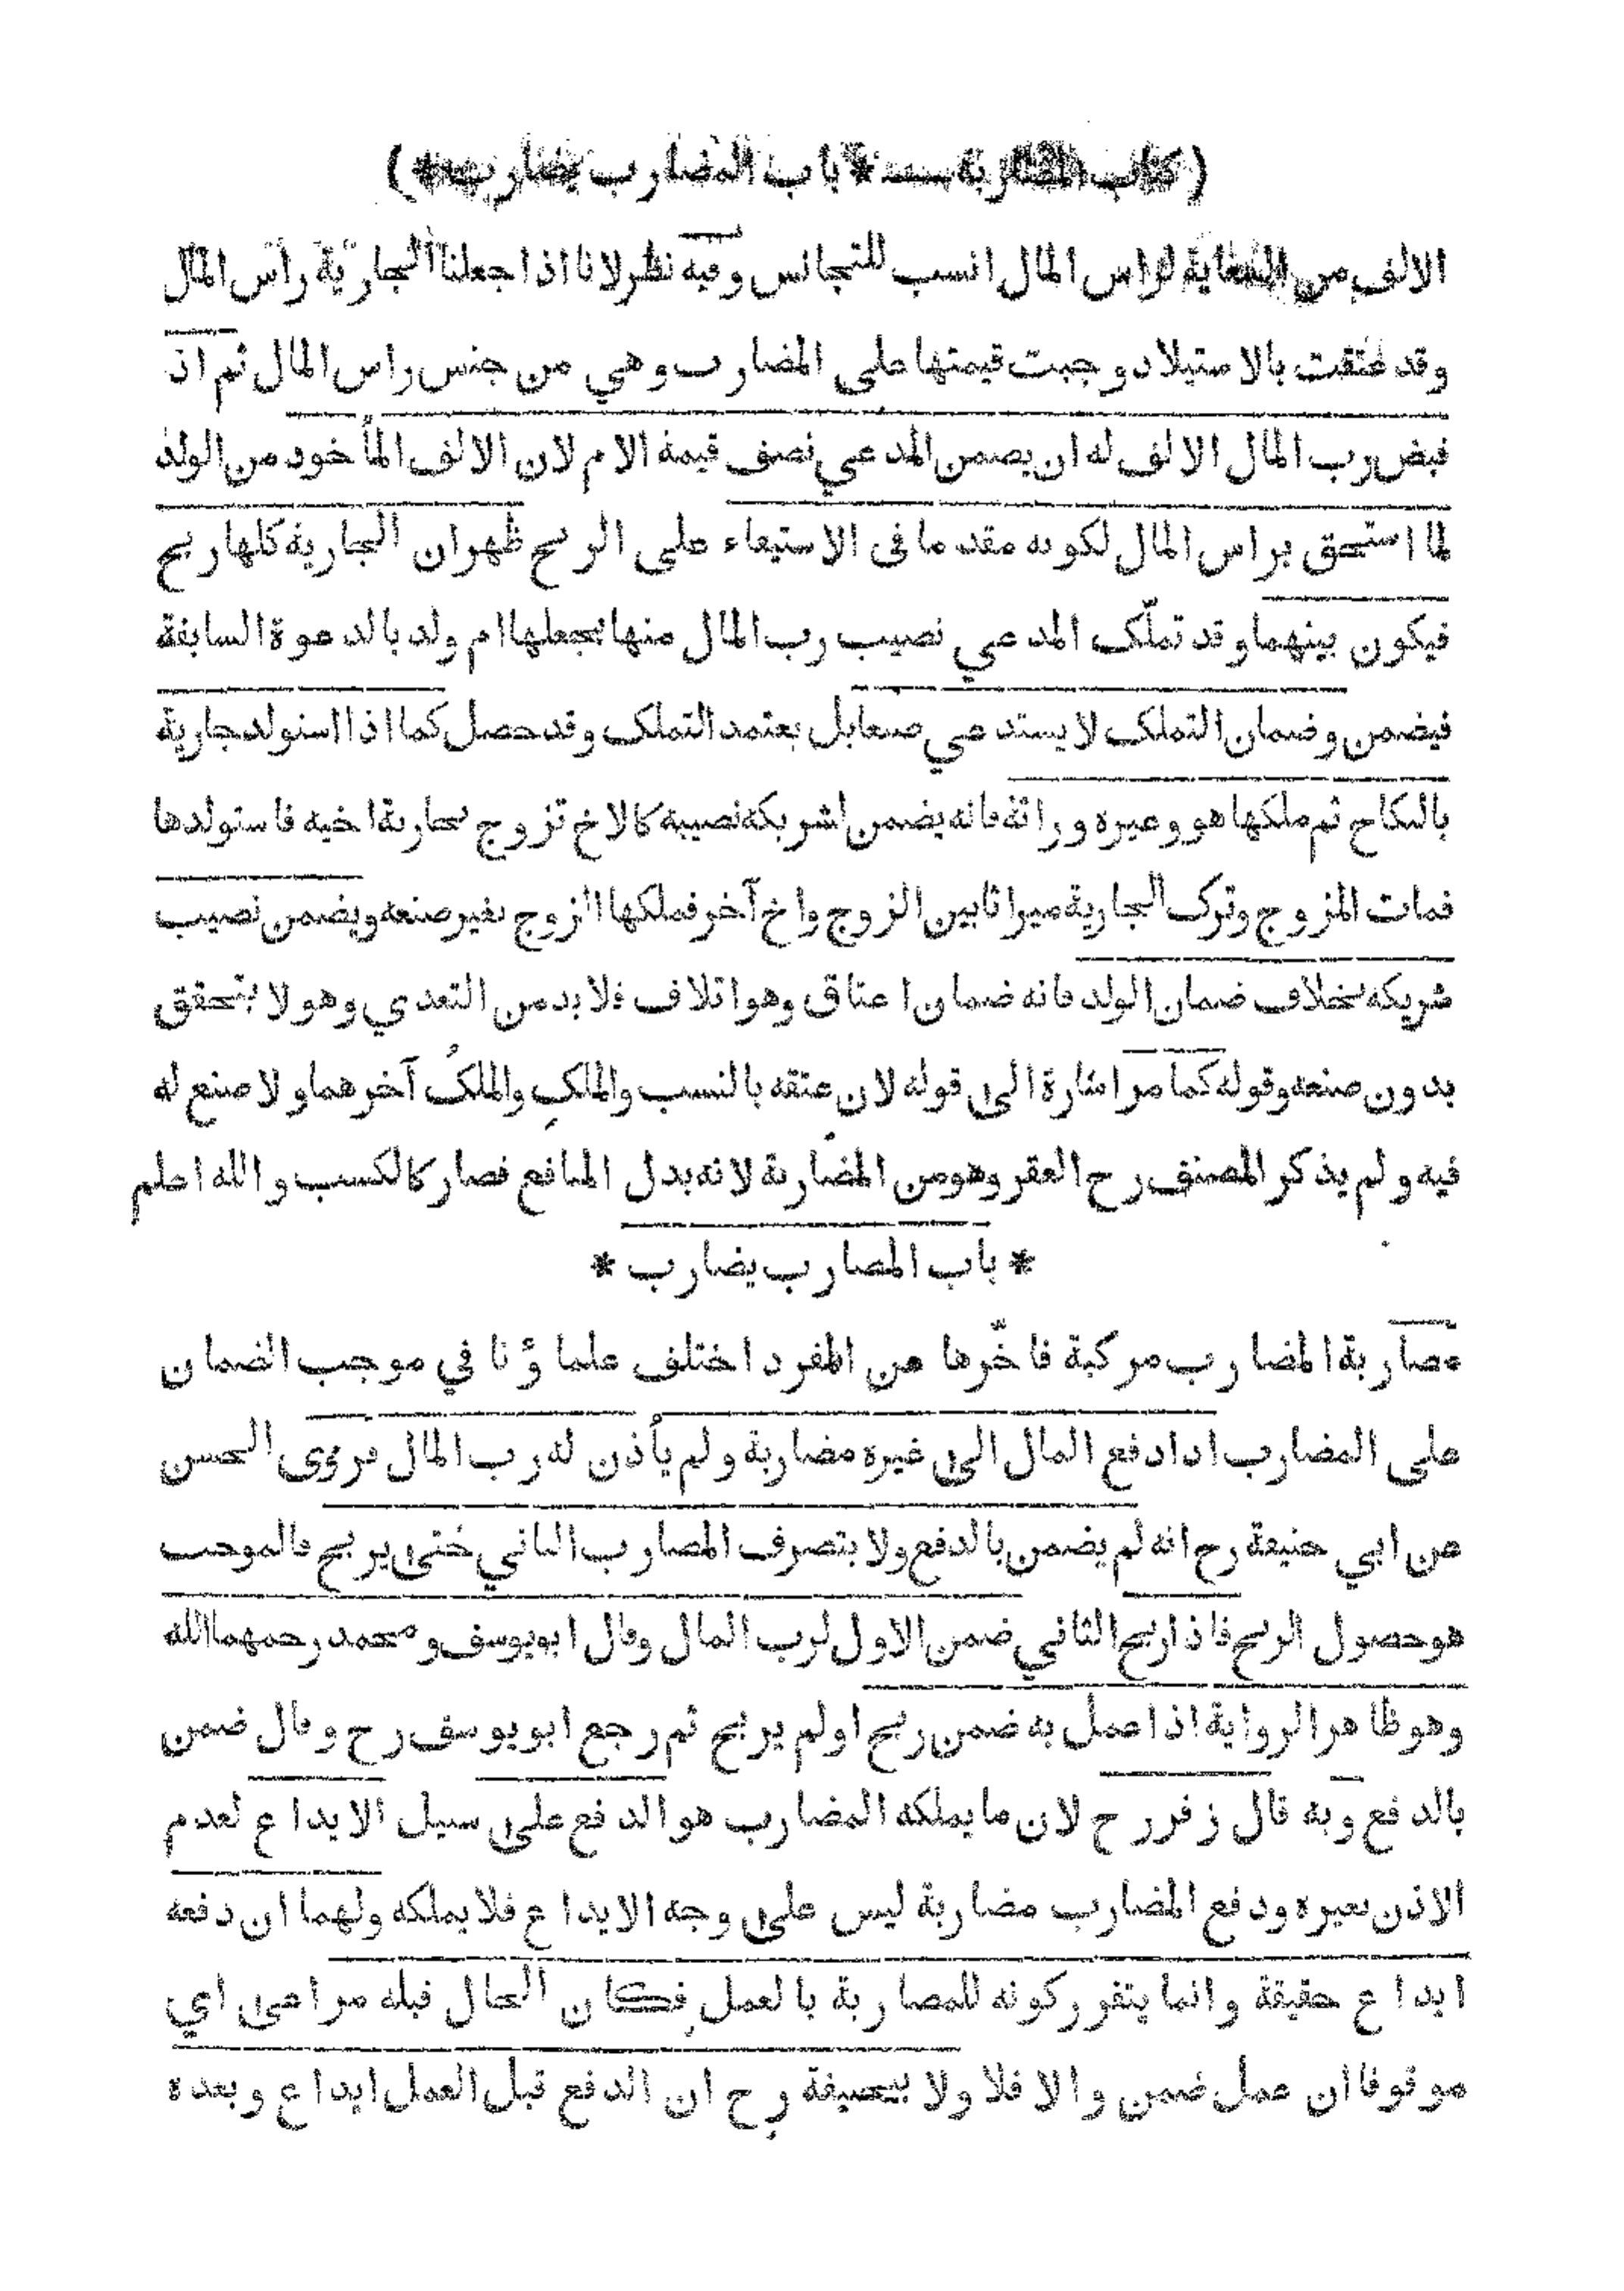 ( كتاب المضاربة * باب المضارب يضارب * )
الالف من السعاية لراس المال انسب للتجانس وفيه نظر لانا اذا جعلنا الجارية رأس المال
وقد عتقت بالاستيلاد وجبت قيمتها على المضارب وهي من جنس راس المال ثم اذ
قبض رب المال الالف له ان يضمن المدعي نصف قيمة الام لان الالف المأخوذ من الولد
لما استحق براس المال لكونه مقدما فى الاستيفاء على الربح ظهر ان الجارية كلها ربح
فيكون بينهما وقد تملّك المدعي نصيب رب المال منها فجعلها ام ولد بالدعوة السابقة
فيضمن وضمان التملك لا يستدعي صنعا بل يعتمد التملك وقد حصل كما اذا استولد جارية
بالنكاح ثم ملكها هو وغيره وراثة فانه يضمن لشريكه نصيبه كالاخ تزوج بجارية اخيه فاستولدها
فمات المزوج وترك الجارية ميراثا بين الزوج واخ آخر فملكها الزوج بغير صنعه ويضمن نصيب
شريكه بخلاف ضمان الولد فانه ضمان اعتاق وهو اتلاف فلا بد من التعدي وهو لا يتحقق
بدون صنعه وقوله كما مر اشارة الى قوله لان عتقه بالنسب والملكِ والملكُ آخرهما ولا صنع له
فيه ولم يذكر المصنف رح العقر وهو من المضاربة لانه بدل المنافع فصار كالكسب والله اعلم
* باب المضارب يضارب *
مضاربة المضارب مركبة فاخّرها عن المفرد اختلف علماؤنا في موجب الضمان
على المضارب اذا دفع المال الى غيره مضاربة ولم يأذن له رب المال فروى الحسن
عن ابي حنيفة رح انه لم يضمن بالدفع ولا بتصرف المضارب الثاني حتى يربح فالموجب
هو حصول الربح فاذا ربح الثاني ضمن الاول لرب المال وقال ابويوسف ومحمد رحمهما الله
وهو ظاهر الرواية اذا عمل به ضمن ربح او لم يربح ثم رجع ابويوسف رح وقال ضمن
بالدفع وبه قال زفر رح لان ما يملكه المضارب هو الدفع على سبيل الايداع لعدم
الاذن بغيره ودفع المضارب مضاربة ليس على وجه الايداع فلا يملكه ولهما ان دفعه
ايداع حقيقة وانما يتقرر كونه للمضاربة بالعمل فكان الحال قبله مراعى اي
موقوفا ان عمل ضمن والا فلا ولابيحنيفة رح ان الدفع قبل العمل ايداع وبعده